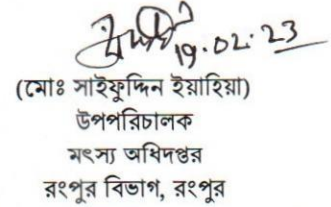 19.02.23
(মোঃ সাইফুদ্দিন ইয়াহিয়া)
উপপরিচালক
মৎস্য অধিদপ্তর
রংপুর বিভাগ, রংপুর